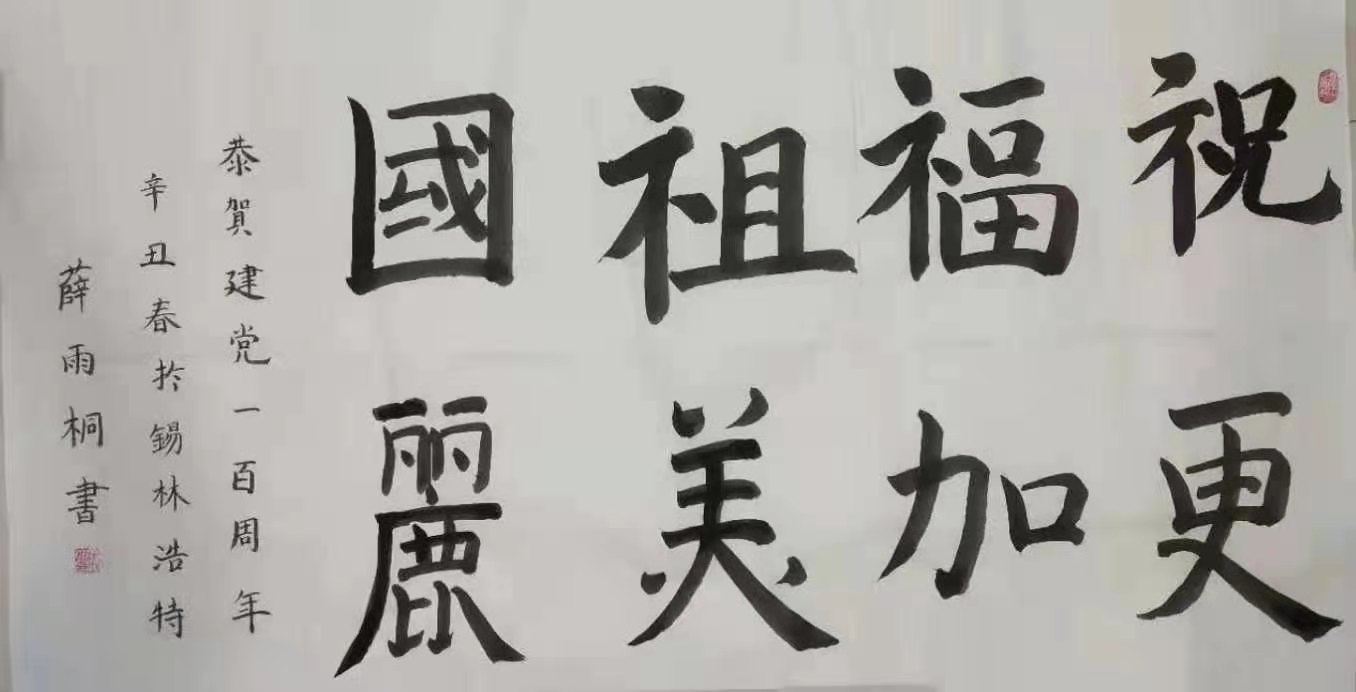 祝更
福加
祖美
國麗
恭賀建党一百周年
辛丑春於錫林浩特
薛雨桐書